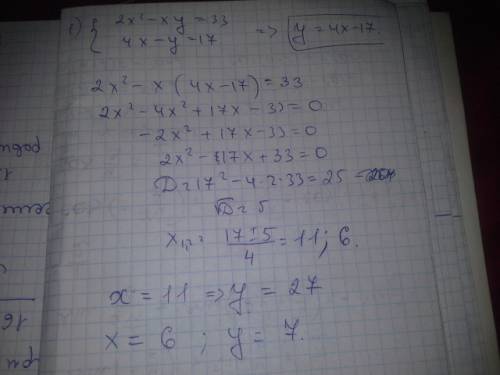 1) { 2x² - xy = 33
4x - y = 17 => y = 4x - 17.
2x² - x (4x - 17) = 33
2x² - 4x² + 17x - 33 = 0
-2x² + 17x - 33 = 0
2x² - 17x + 33 = 0
D = 17² - 4·2·33 = 25
√D = 5
x₁,₂ = (17 ± 5)/4 = 11; 6.
x = 11 => y = 27
x = 6 ; y = 7.
16
ри